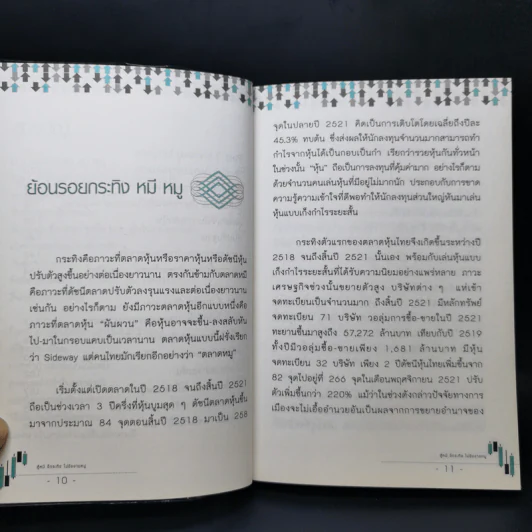 ย้อนรอยกระทิง หมี หมู
กระทิงคือภาวะที่ตลาดหุ้นหรือราคาหุ้นหรือดัชนีหุ้น
ปรับตัวสูงขึ้นอย่างต่อเนื่องยาวนาน ตรงกันข้ามกับตลาดหมี
คือภาวะที่ดัชนีตลาดปรับตัวลงรุนแรงและต่อเนื่องยาวนาน
เช่นกัน อย่างไรก็ตาม ยังมีภาวะตลาดหุ้นอีกแบบหนึ่งคือ
ภาวะที่ตลาดหุ้น "ผันผวน" คือหุ้นอาจจะขึ้น-ลงสลับหัน
ไป-มาในกรอบแคบเป็นเวลานาน ตลาดหุ้นแบบนี้ฝรั่งเรียก
ว่า Sideway แต่คนไทยมักเรียกอีกอย่างว่า "ตลาดหมู"
เริ่มตั้งแต่เปิดตลาดในปี 2518 จนถึงสิ้นปี 2521
ถือเป็นช่วงเวลา 3 ปีครึ่งที่หุ้นบูมสุด ๆ ดัชนีตลาดหุ้นขึ้น
มาจากประมาณ 84 จุดตอนสิ้นปี 2518 มาเป็น 258
- 10 -
จุดในปลายปี 2521 คิดเป็นการเติบโตโดยเฉลี่ยถึงปีละ
45.3% ทบต้น ซึ่งส่งผลให้นักลงทุนจำนวนมากสามารถทำ
กำไรจากหุ้นได้เป็นกอบเป็นกำ เรียกว่ารวยหุ้นกันทั่วหน้า
ในช่วงนั้น "หุ้น" ถือเป็นการลงทุนที่คุ้มค่ามาก อย่างไรก็ตาม
ด้วยจำนวนคนเล่นหุ้นที่มีอยู่ไม่มากนัก ประกอบกับการขาด
ความรู้ความเข้าใจที่ดีพอทำให้นักลงทุนส่วนใหญ่หันมาเล่น
หุ้นแบบเก็งกำไรระยะสั้น
กระทิงตัวแรกของตลาดหุ้นไทยจึงเกิดขึ้นระหว่างปี
2518 จนถึงสิ้นปี 2521 นั่นเอง พร้อมกับเล่นหุ้นแบบ
เก็งกำไรระยะสั้นที่ได้รับความนิยมอย่างแพร่หลาย ภาวะ
เศรษฐกิจช่วงนั้นขยายตัวสูง บริษัทต่าง ๆ แห่เข้า
จดทะเบียนเป็นจำนวนมาก ถึงสิ้นปี 2521 มีหลักทรัพย์
จดทะเบียน 71 บริษัท วอลุ่มการซื้อ-ขายในปี 2521
ทะยานขึ้นมาสูงถึง 57,272 ล้านบาท เทียบกับปี 2519
ทั้งปีมีวอลุ่มซื้อ-ขายเพียง 1,681 ล้านบาท มีหุ้น
จดทะเบียน 32 บริษัท เพียง 2 ปีดัชนีหุ้นไทยเพิ่มขึ้นจาก
82 จุดไปอยู่ที่ 266 จุดในเดือนพฤศจิกายน 2521 ปรับ
ตัวเพิ่มขึ้นกว่า 220% แม้ว่าในช่วงดังกล่าวปัจจัยทางการ
เมืองจะไม่เอื้ออำนวยอันเป็นผลจากการขยายอำนาจของ
- 11 -